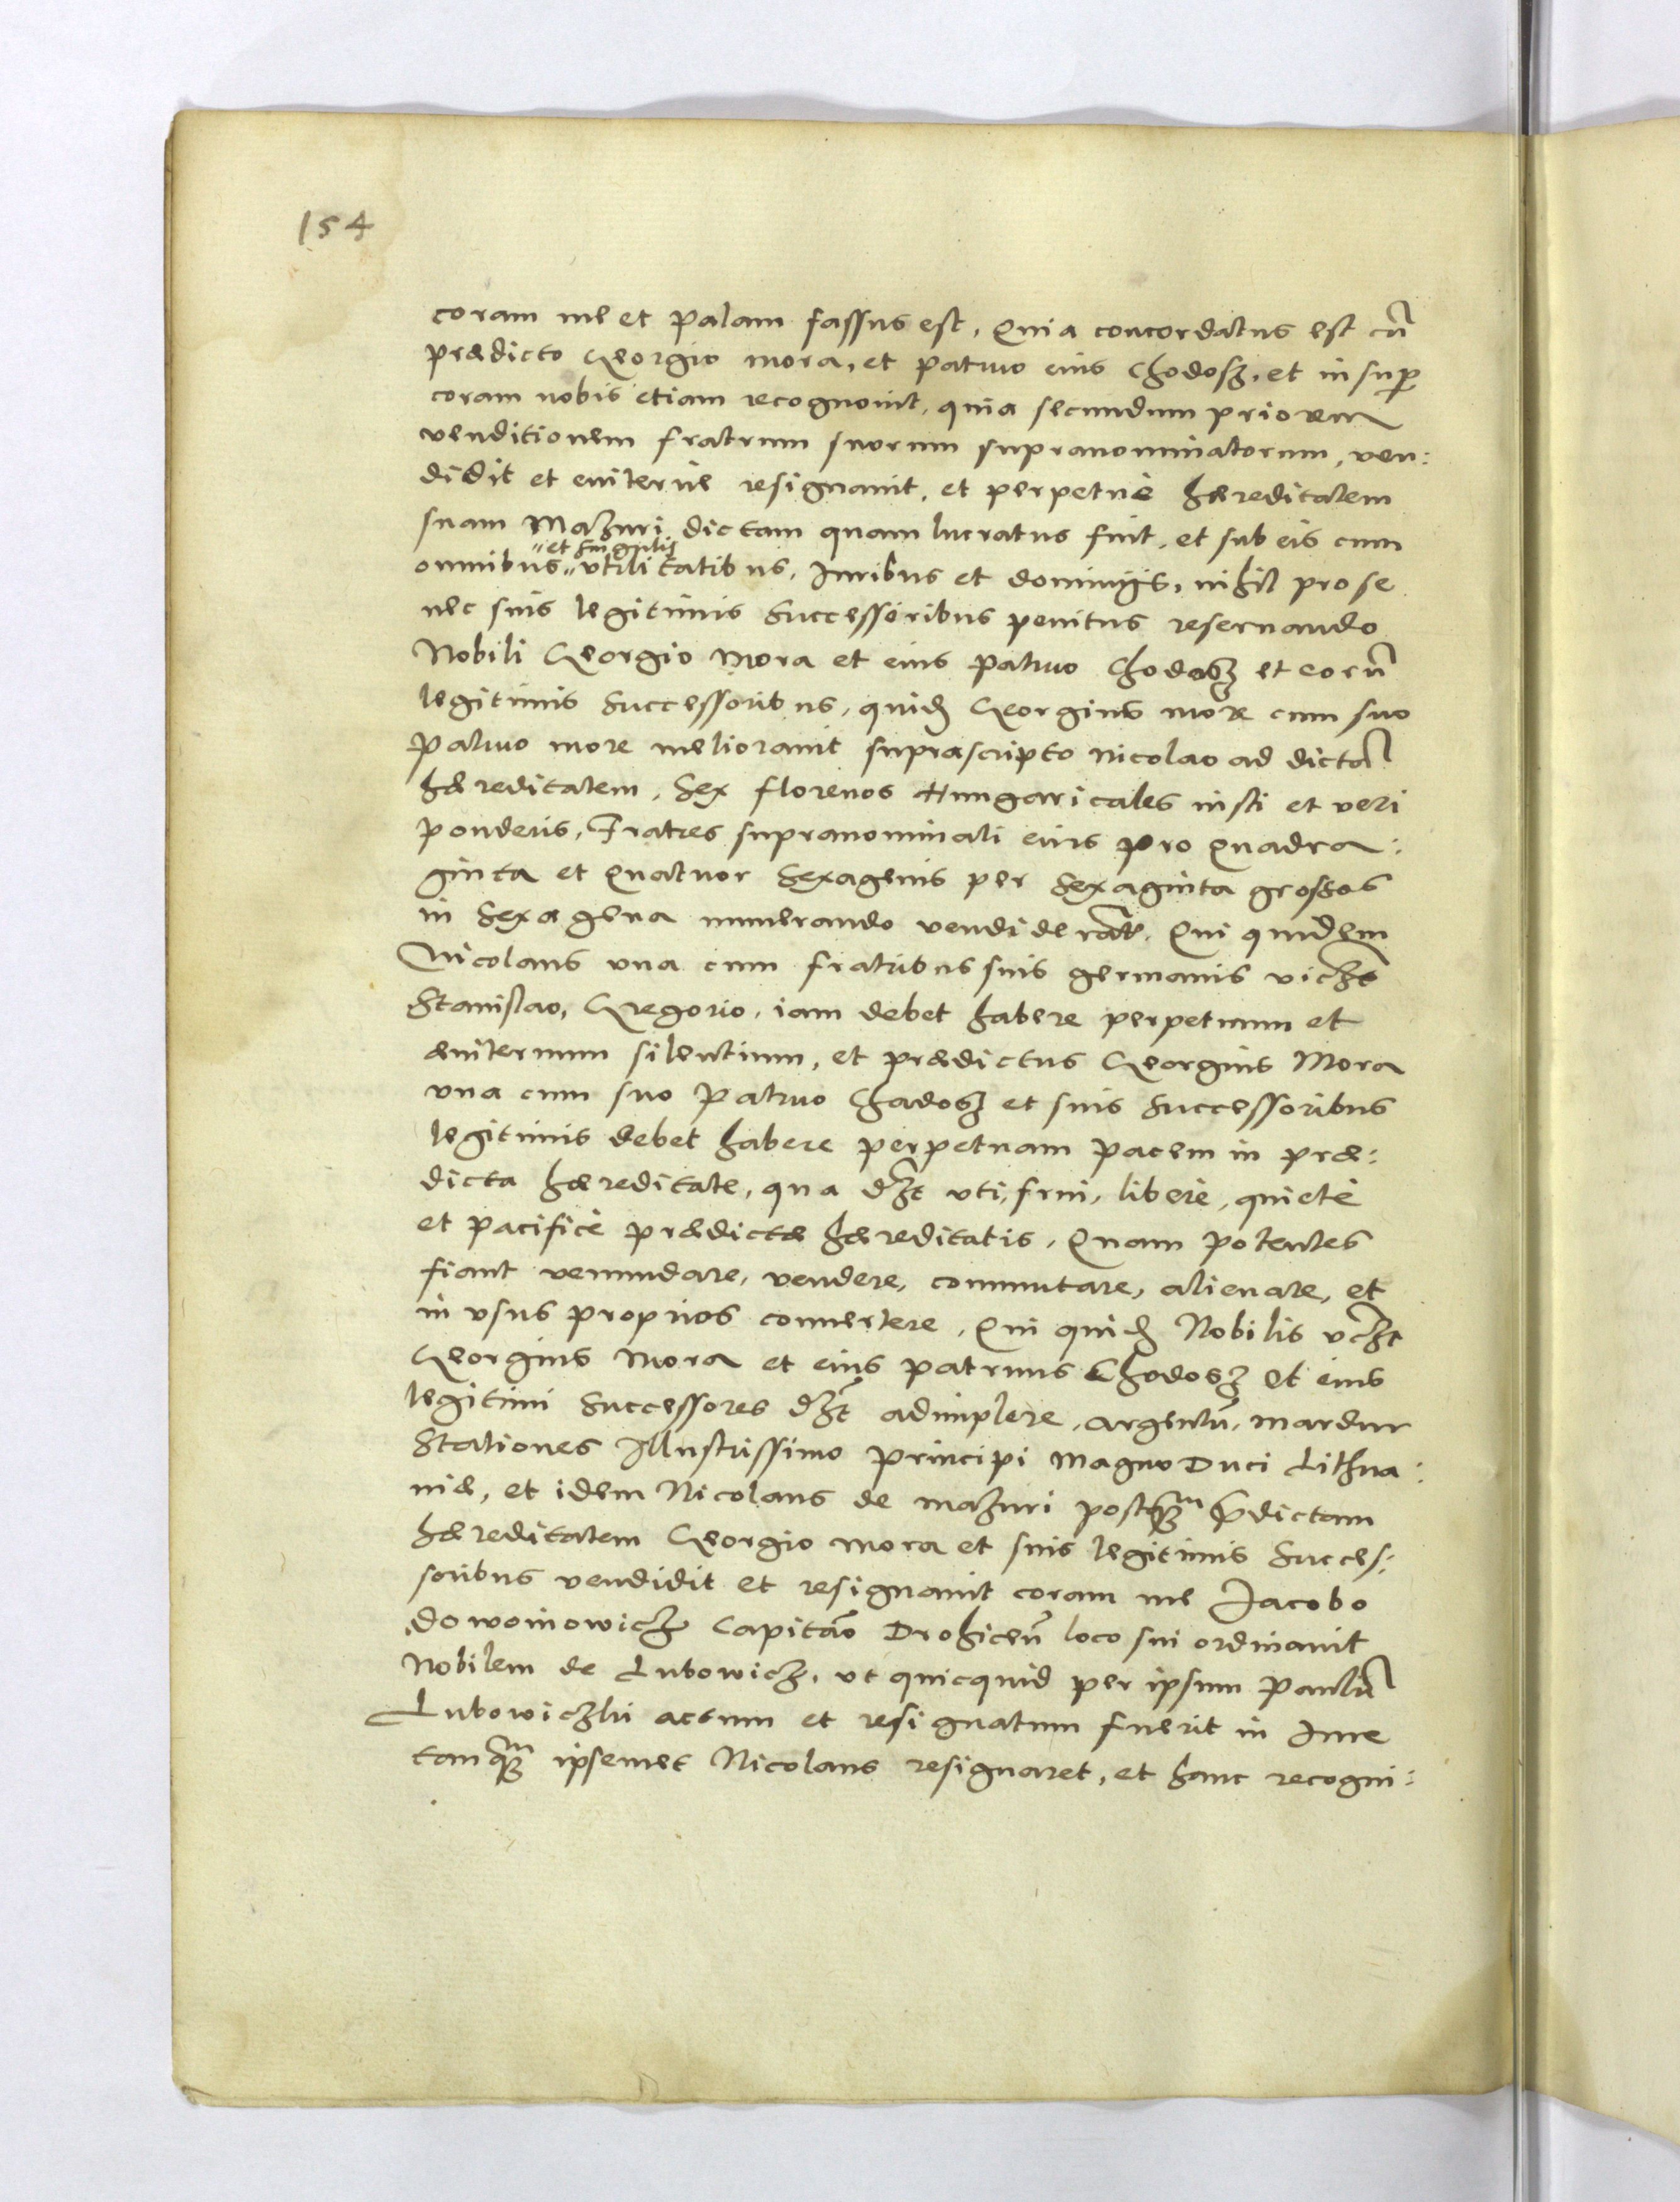 154
coram me et palam fassus est, Quia concordatus est cũ
prædicto Georgio mora, et patruo eius Chodosz, et insuꝑ
coram nobis etiam recognouit, quia secundum priorem
venditionem fratrum suorum supranominatorum, ven:
didit et euiterne resignauit, et perpetuè hæreditatem
suam Mazuri dictam quam lucratus fuit, et sub eis cum
omnibus "et singulis" vtilitatibus, Iuribus et dominijs, nihil pro se
nec suis legitimis Successoribus penitus reseruando
Nobili Georgio Mora et eius patruo Chodosz et eorũ
legitimis Successoribus, quiđ Georgius more cum suo
patruo more meliorauit suprascripto Nicolao ad dictã
hæreditatem, Sex florenos Hungaricales iusti et veri
ponderis, Fratres supranominati eius pro Quadra:
ginta et Quatuor Sexagenis per Sexaginta grossos
in Sexagena numerando vendiderũt. Qui quidem
Nicolaus vna cum fratribus suis germanis vichꝫt
Stanislao, Gregorio, iam debet habere perpetuum et
æuiternum silentium, et prædictus Georgius Mora
vna cum suo Patruo Chadosz et suis Successoribus
legitimis debet habere perpetuam pacem in præ:
dicta hæreditate, qua dꝫt vti, frui, liberè, quietè
et pacificè prædictæ hæreditatis, Quam potentes
fiant venundare, vendere, commutare, alienare, et
in vsus proprios conuertere. Qui quiđ Nobilis vꝫt
Georgius Mora et eius patruus Chodosz et eius
legitimi Successores dꝫt adimplere, argentũ, mardur
Stationes Illustrissimo Principi Magno Duci Lithua:
niæ, et idem Nicolaus de mazuri postꝙm p̃dictam
hæreditatem Georgio mora et suis legitimis Succes:
soribus vendidit et resignauit coram me Iacobo
dowoinowicz Capitão Drohiceñ loco sui ordinauit
Nobilem de Lubowicz, vt quicquid per ipsum Paulũ
Lubowiczki actum et resignatum fuerit in Iure
tanꝙm ipsemet Nicolaus resignaret, et hanc recogni: